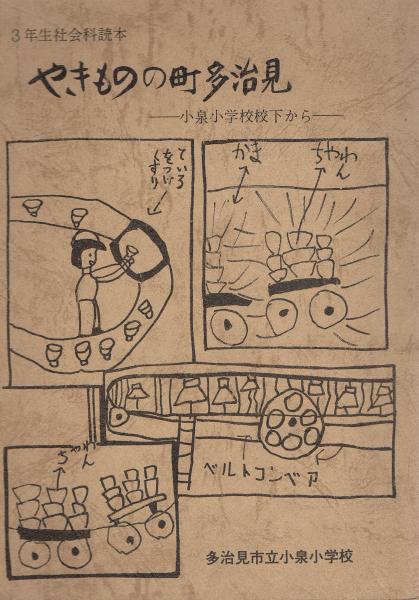 3年生社会科読本
やきものの町多治見
――小泉小学校校下から――
ている
をつけ
くすり
かま
ちゃわん
ちゃわん
ベルトコンベア
多治見市立小泉小学校